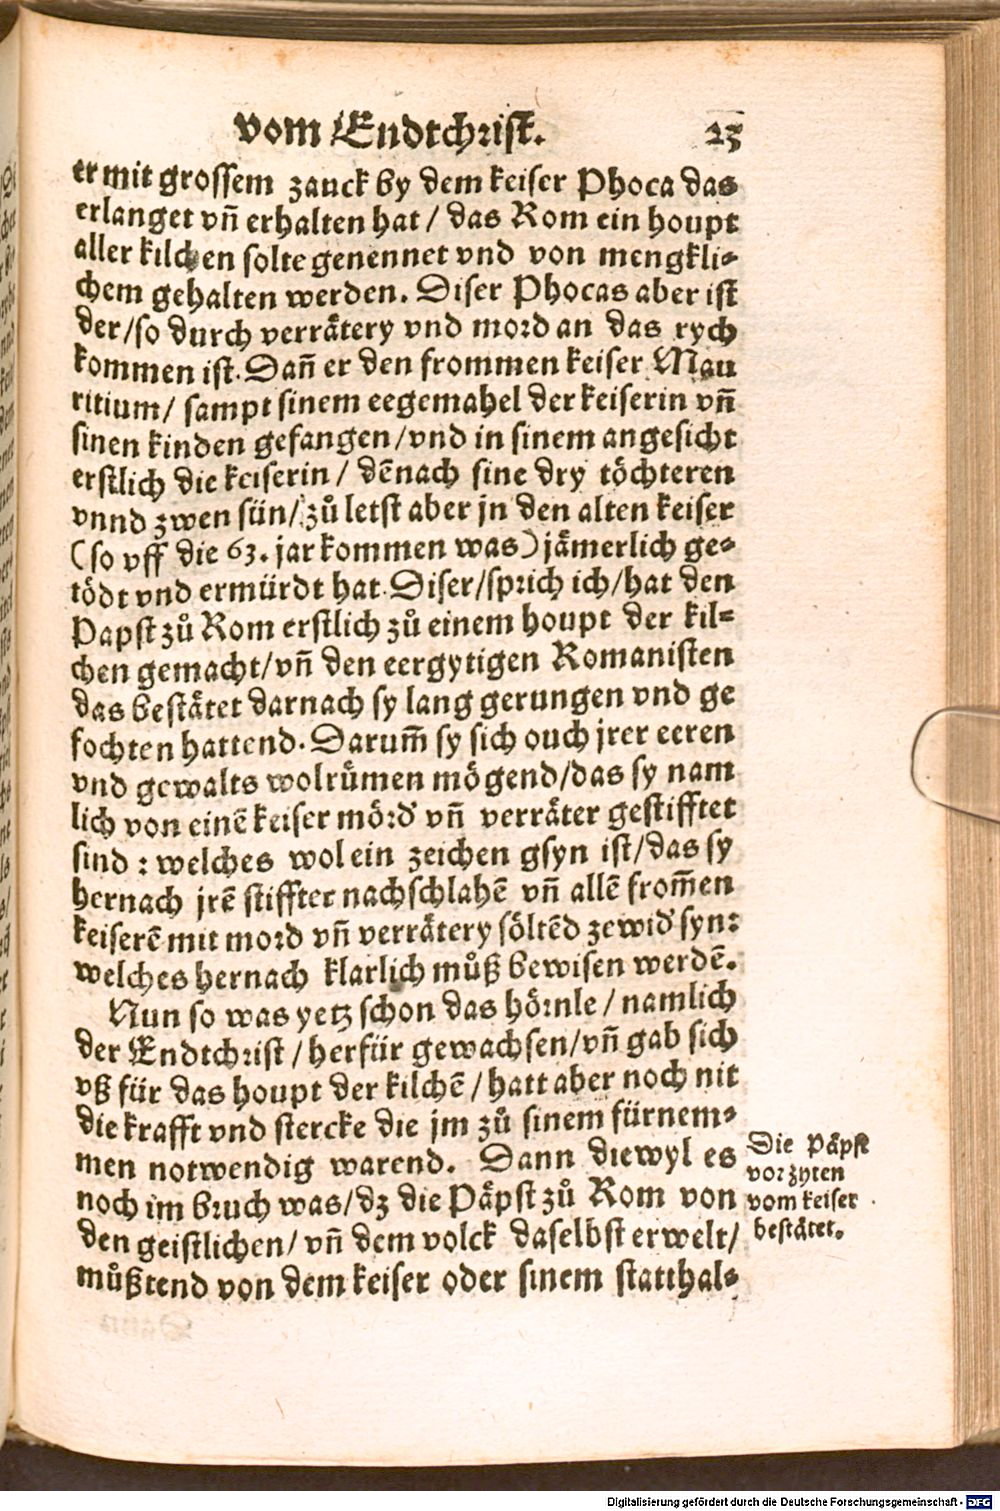 vom Endtchrist. 25
er mit grossem zanck by dem keiser Phoca das
erlanget vn̄ erhalten hat / das Rom ein houpt
aller kilchen solte genennet vnd von mengkli-
chem gehalten werden. Diser Phocas aber ist
der/so durch verrätery vnd mord an das rych
kommen ist. Dan̄ er den frommen keiser Mau
ritium/ sampt sinem eegemahel der keiserin vn̄
sinen kinden gefangen/vnd in sinem angesicht
erstlich die keiserin/ dēnach sine dry töchteren
vnnd zwen sün/ zů letst aber jn den alten keiser
(so vff die 63. jar kommen was) jämerlich ge-
tödt vnd ermürdt hat. Diser/sprich ich/hat den
Papst zů Rom erstlich zů einem houpt der kil-
chen gemacht/vn̄ den eergytigen Romanisten
das bestätet darnach sy lang gerungen vnd ge
fochten hattend. Darum̄ sy sich ouch jrer eeren
vnd gewalts wolrümen mögend/das sy nam
lich von einē keiser mörd' vn̄ verräter gestifftet
sind : welches wol ein zeichen gsyn ist/das sy
hernach jrē stiffter nachschlahē vn̄ allē from̄en
keiserē mit mord vn̄ verrätery söltēd zewid' syn:
welches hernach klarlich můß bewisen werdē.
Nun so was yetz schon das hörnle / namlich
der Endtchrist / herfür gewachsen/vn̄ gab sich
vß für das houpt der kilchē / hatt aber noch nit
die krafft vnd stercke die jm zů sinem fürnem-
men notwendig warend. Dann diewyl es
noch im bruch was/dz die Päpst zů Rom von
den geistlichen/ vn̄ dem volck daselbst erwelt/
můßtend von dem keiser oder sinem statthal-
Die Päpst
vor zyten
vom keiser
bestätet.
Digitalisierung gefördert durch die Deutsche Forschungsgemeinschaft - DFG